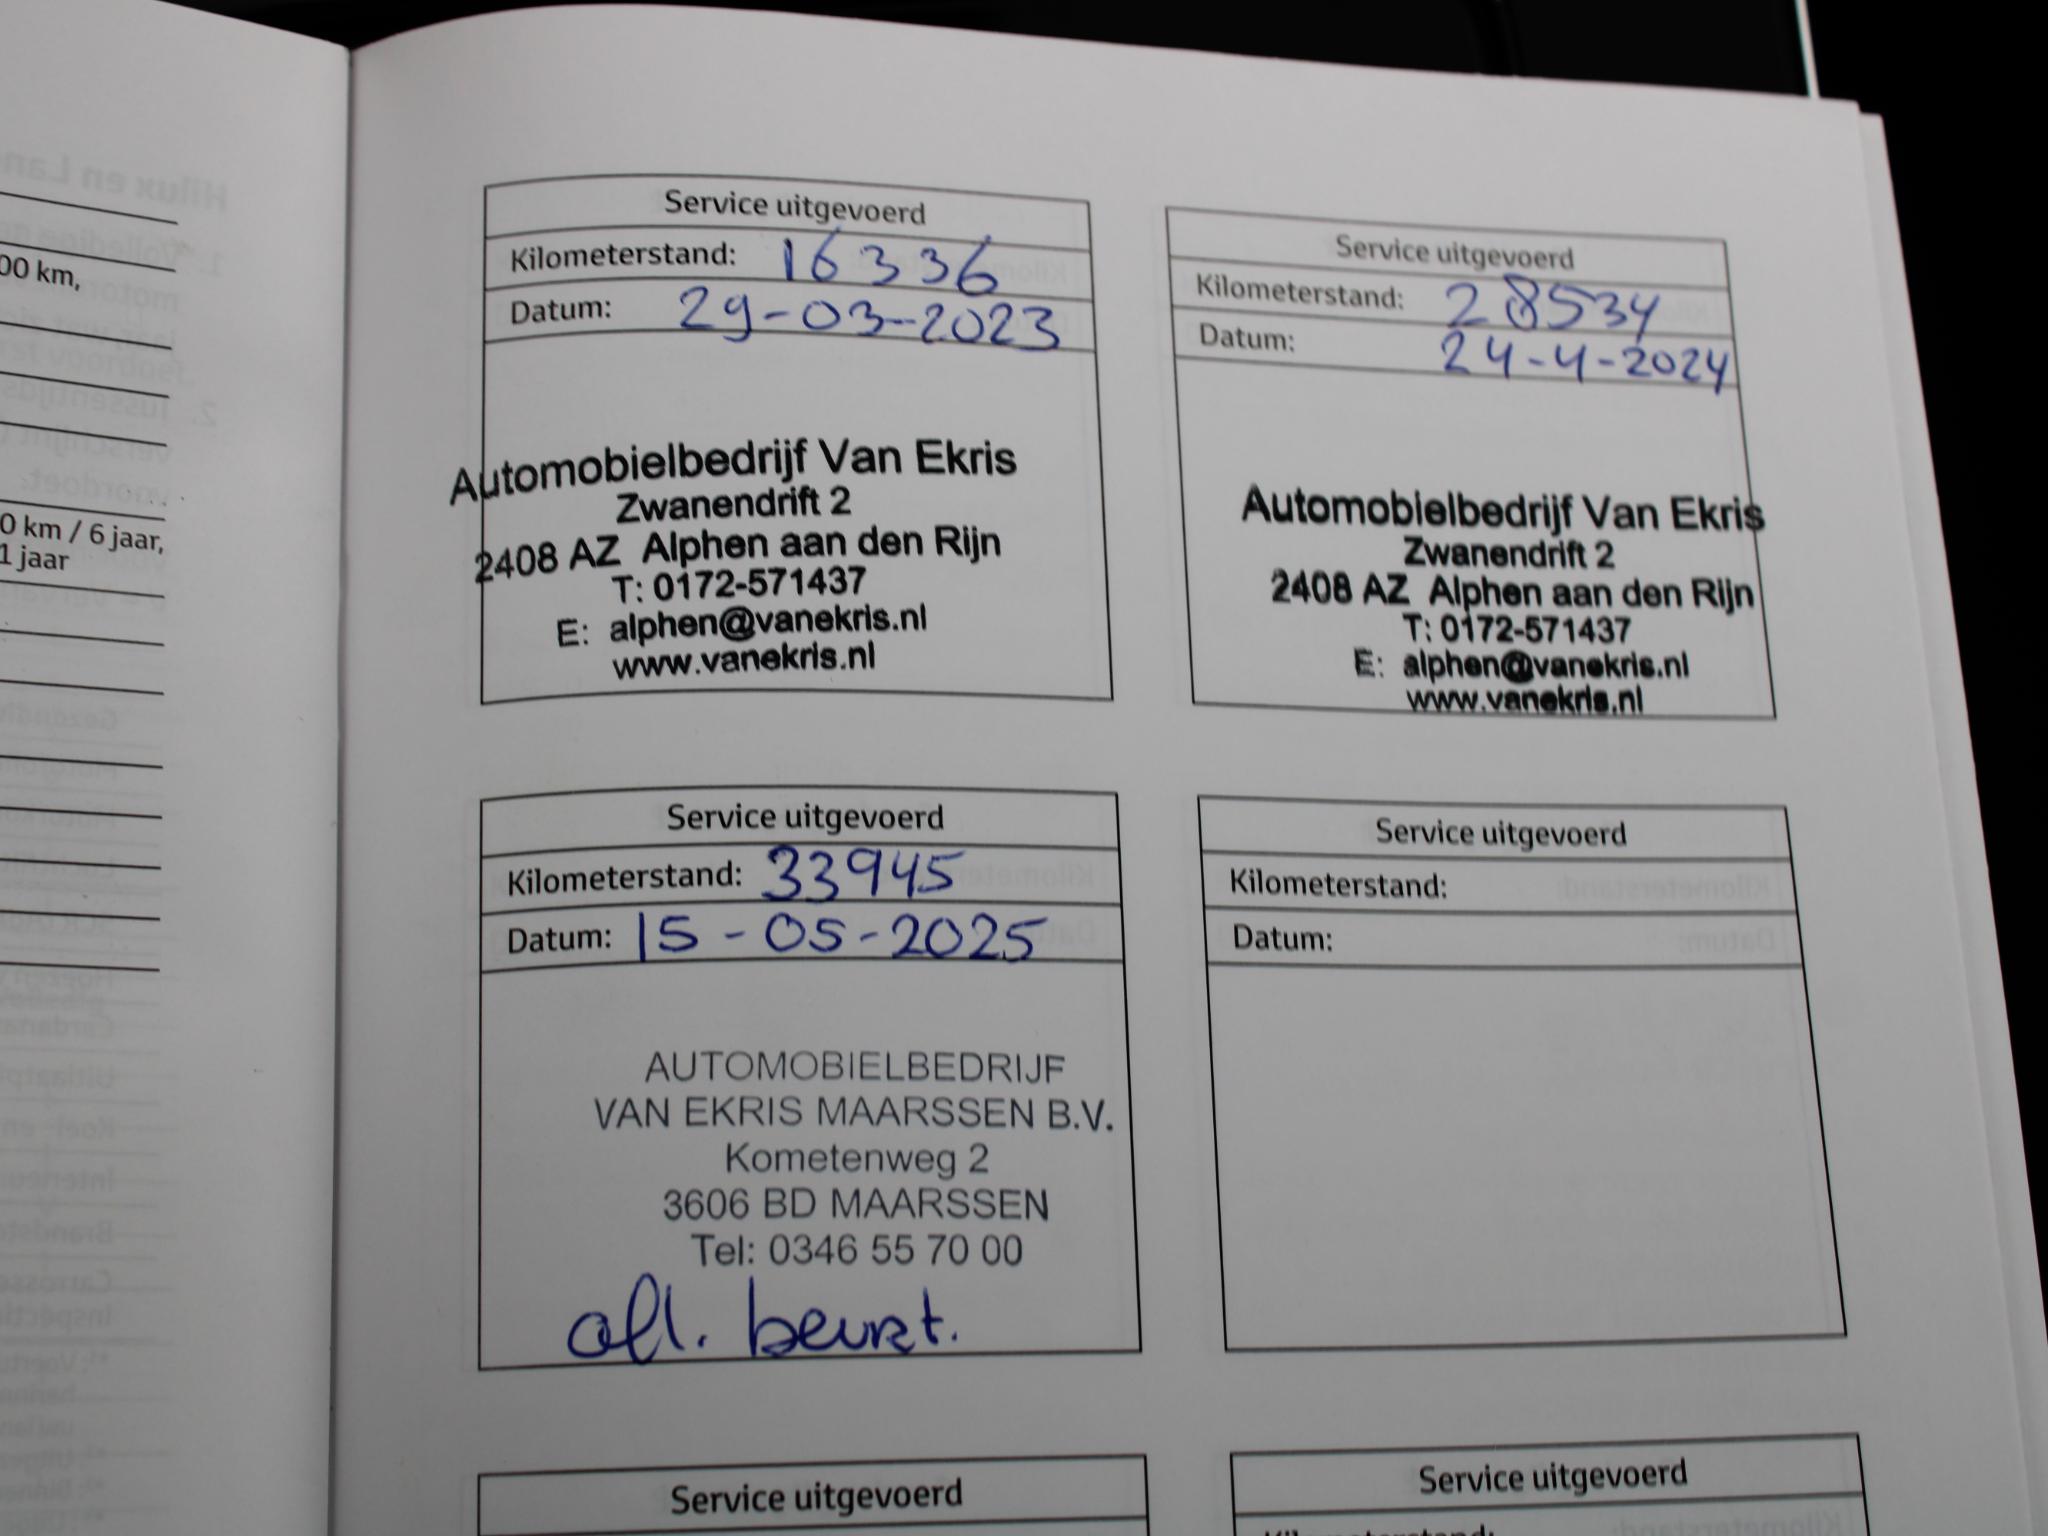 00 km,
0 km / 6 jaar,
1 jaar
Service uitgevoerd
Kilometerstand: 16336
Datum: 29-03-2023
Automobielbedrijf Van Ekris
Zwanendrift 2
2408 AZ Alphen aan den Rijn
T: 0172-571437
E: alphen@vanekris.nl
www.vanekris.nl
Service uitgevoerd
Kilometerstand: 28534
Datum: 24-4-2024
Automobielbedrijf Van Ekris
Zwanendrift 2
2408 AZ Alphen aan den Rijn
T: 0172-571437
E: alphen@vanekris.nl
www.vanekris.nl
Service uitgevoerd
Kilometerstand: 33945
Datum: 15-05-2025
AUTOMOBIELBEDRIJF
VAN EKRIS MAARSSEN B.V.
Kometenweg 2
3606 BD MAARSSEN
Tel: 0346 55 70 00
afl. beurt.
Service uitgevoerd
Kilometerstand:
Datum:
Service uitgevoerd
Service uitgevoerd
Kilometerstand: